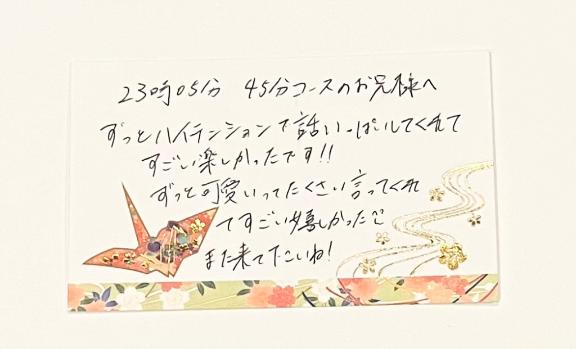 23時05分 45分コースのお兄様へ
ずっとハイテンションで話いっぱいしてくれて
すごい楽しかったです!!
ずっと可愛いってたくさい言ってくれ
てすごい嬉しかった
また来てたこいね!